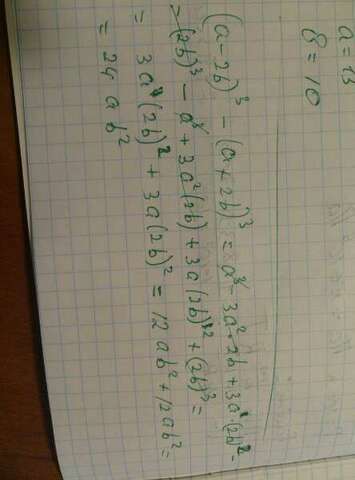 a = 13
b = 10
(a-2b)³ - (a+2b)³ = a³ - 3a²·2b + 3a·(2b)² -
- (2b)³ - a³ + 3a²(2b) + 3a(2b)² + (2b)³ =
= 3a(2b)² + 3a(2b)² = 12ab² + 12ab² =
= 24ab²